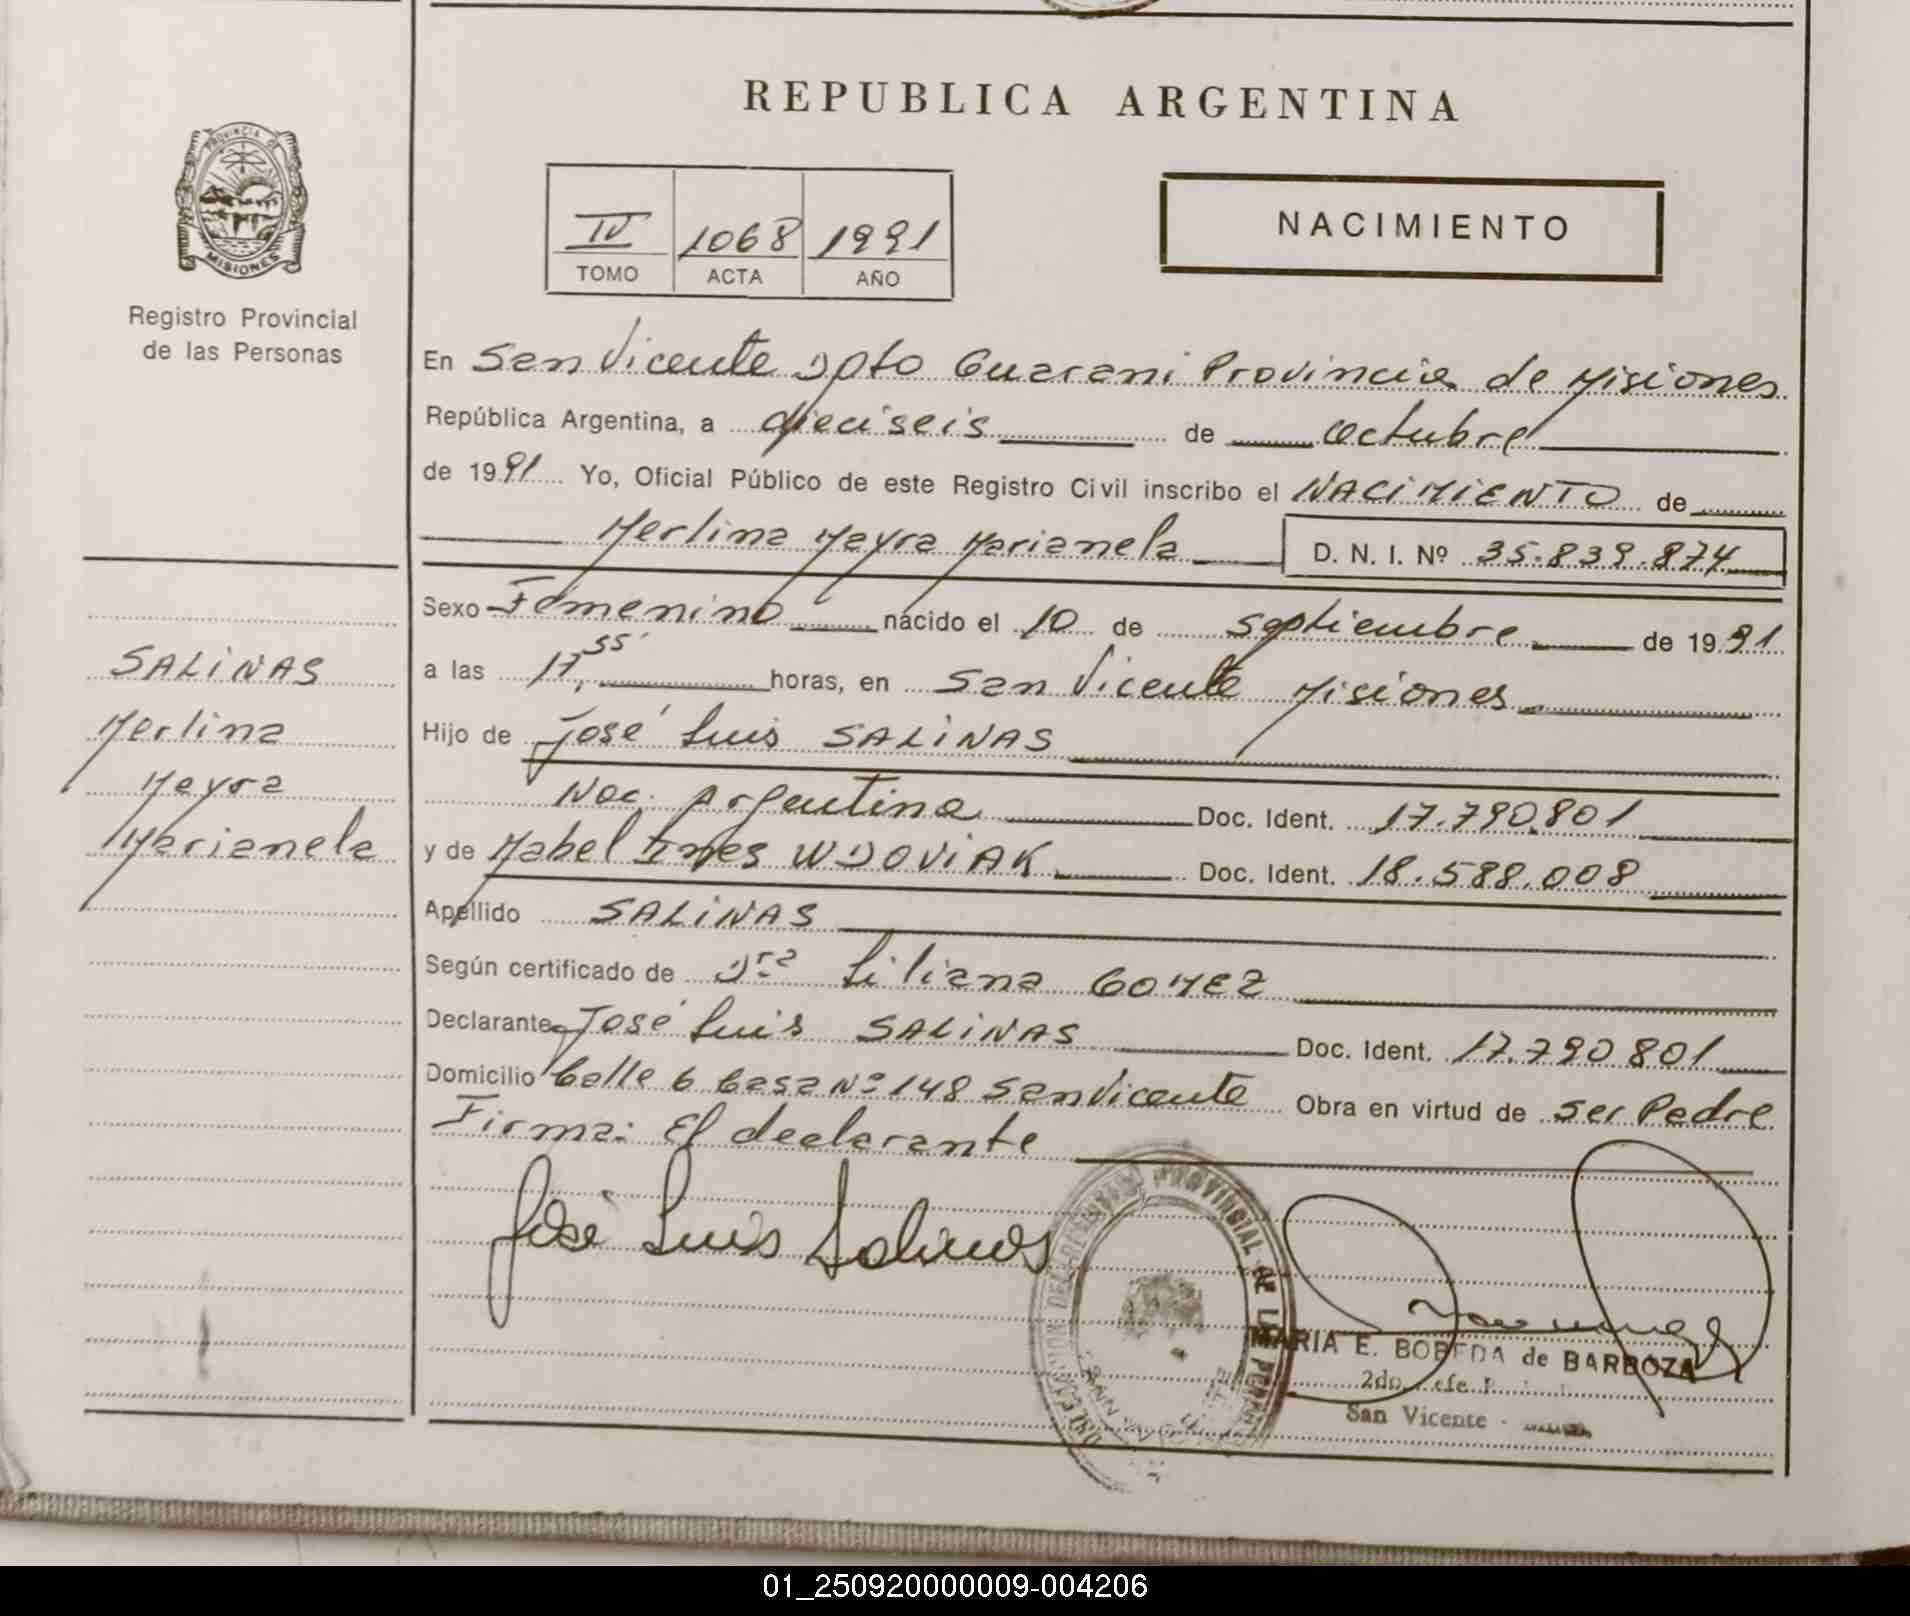 REPUBLICA ARGENTINA
PROVINCIA DE
MISIONES
Registro Provincial
de las Personas
IV 1068 1991
TOMO ACTA AÑO
NACIMIENTO
En San Vicente Dpto Guarani Provincia de Misiones
República Argentina, a dieciseis de octubre
de 1991 Yo, Oficial Público de este Registro Civil inscribo el NACIMIENTO de
Merlina Mayra Marianela D. N. I. Nº 35.839.874
Sexo Femenino nacido el 10 de septiembre de 1991
a las 17,55' horas, en San Vicente Misiones
Hijo de José Luis SALINAS
Nac. Argentina Doc. Ident. 17.790.801
y de Mabel Ines WDOVIAK Doc. Ident. 18.588.008
Apellido SALINAS
Según certificado de Dra Liliana GOMEZ
Declarante José Luis SALINAS Doc. Ident. 17.790.801
Domicilio Calle 6 Casa Nº 148 San Vicente Obra en virtud de ser Padre
Firma: El declarante
José Luis Salinas
SALINAS
Merlina
Mayra
Marianela
DIRECCION DEL REGISTRO PROVINCIAL DE LAS PERSONAS
MARIA E. BOBEDA de BARBOZA
2do. Jefe
San Vicente -
01_250920000009-004206